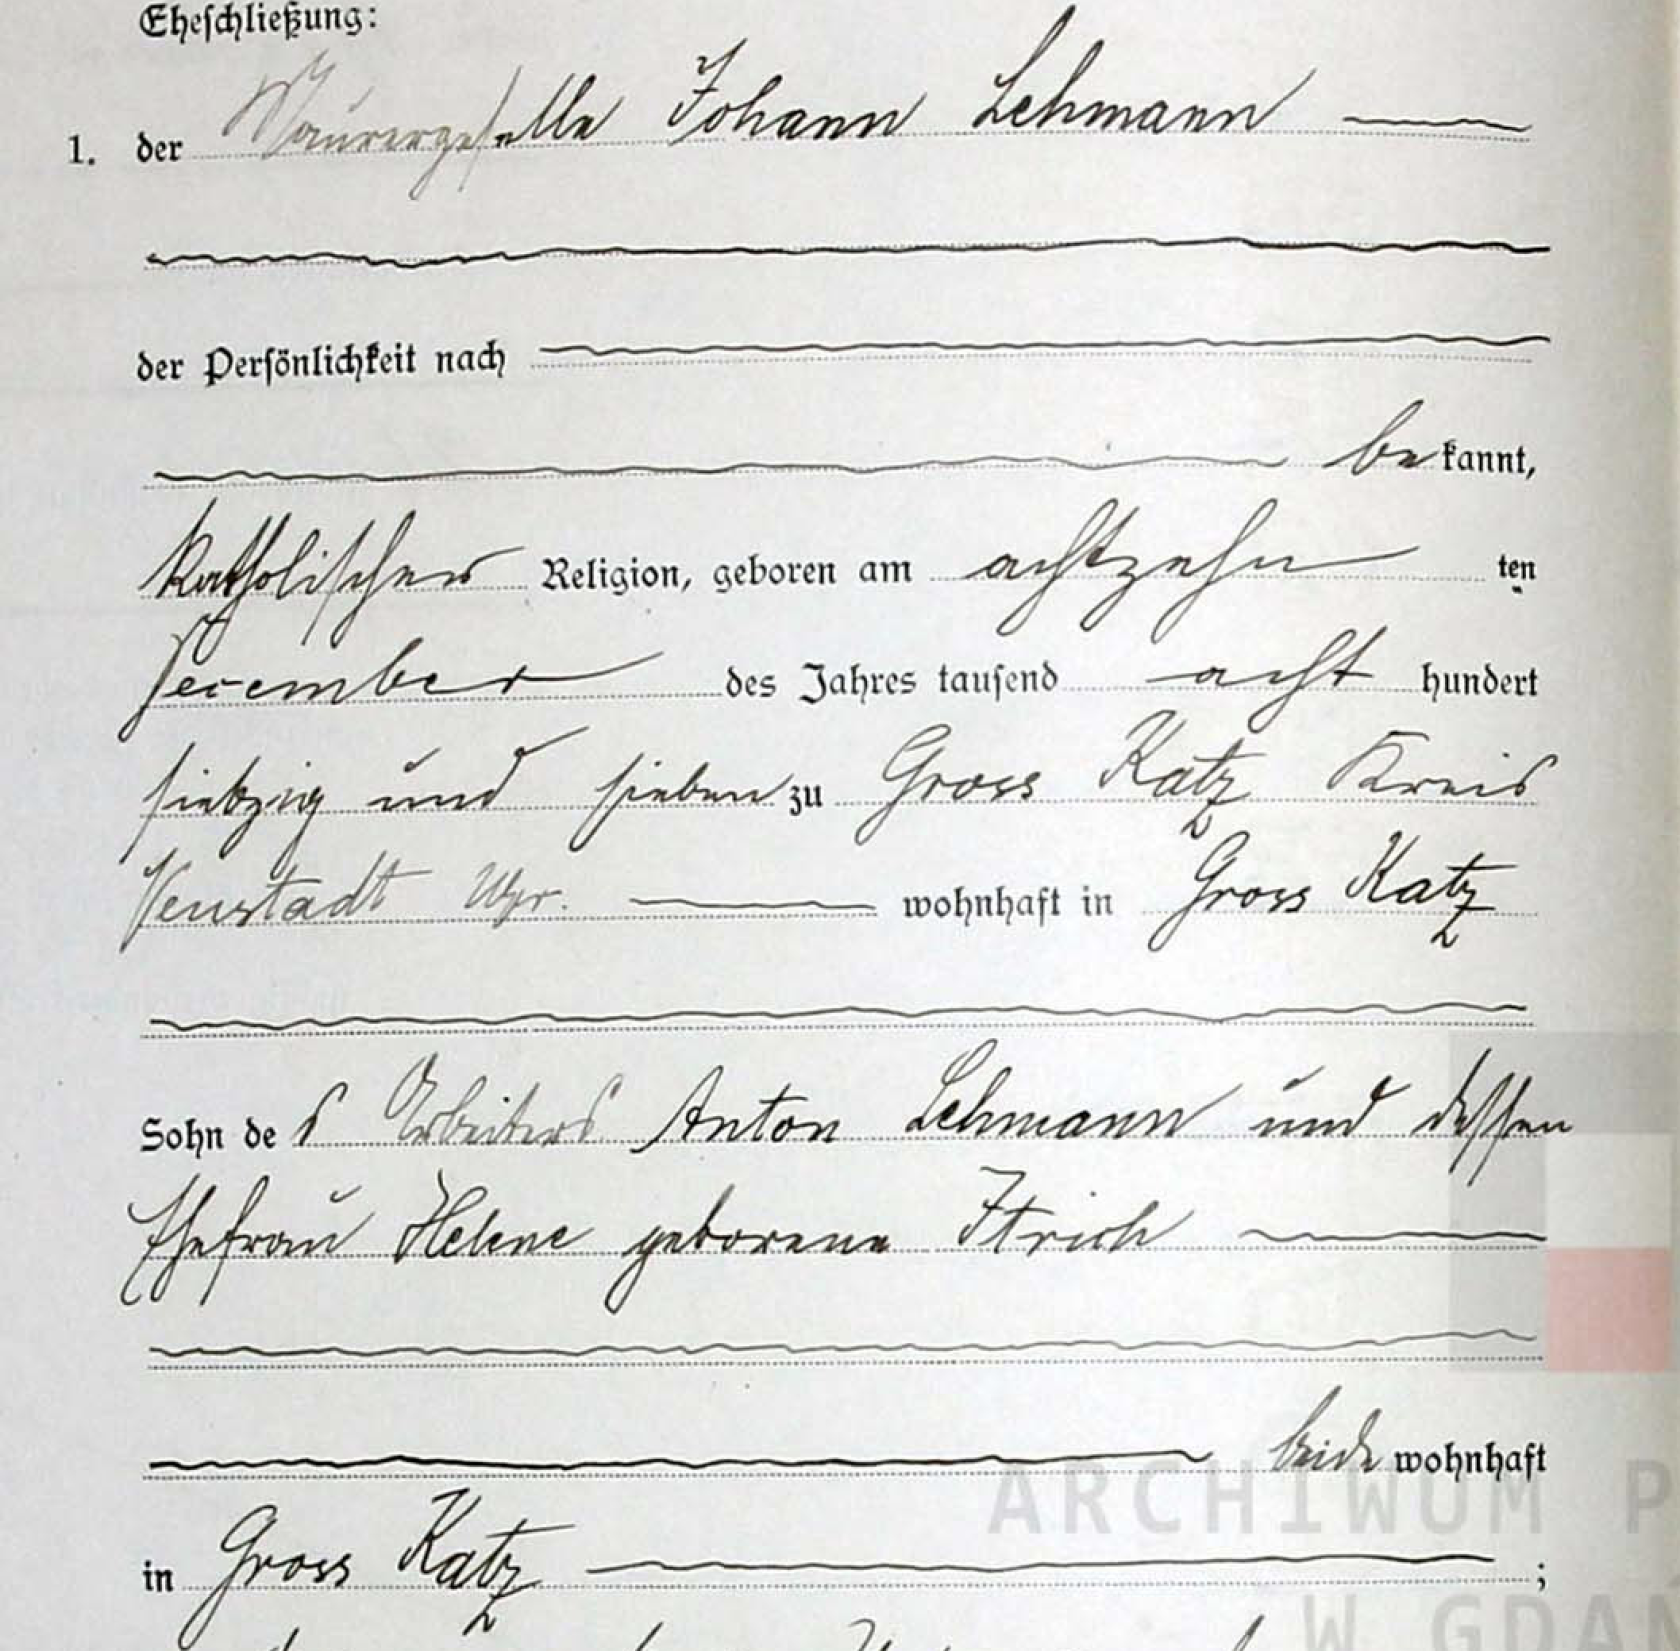 Eheschließung:
1. der Maurergeselle Johann Lehmann
der Persönlichkeit nach
bekannt,
katholischer Religion, geboren am achtzehn ten
December des Jahres tausend acht hundert
siebzig und sieben zu Gross Katz Kreis
Neustadt Wpr. wohnhaft in Gross Katz
Sohn des Arbeiters Anton Lehmann und dessen
Ehefrau Helene geborene Itrich
beide wohnhaft
in Gross Katz ;
ARCHIWUM P
W GDAŃ